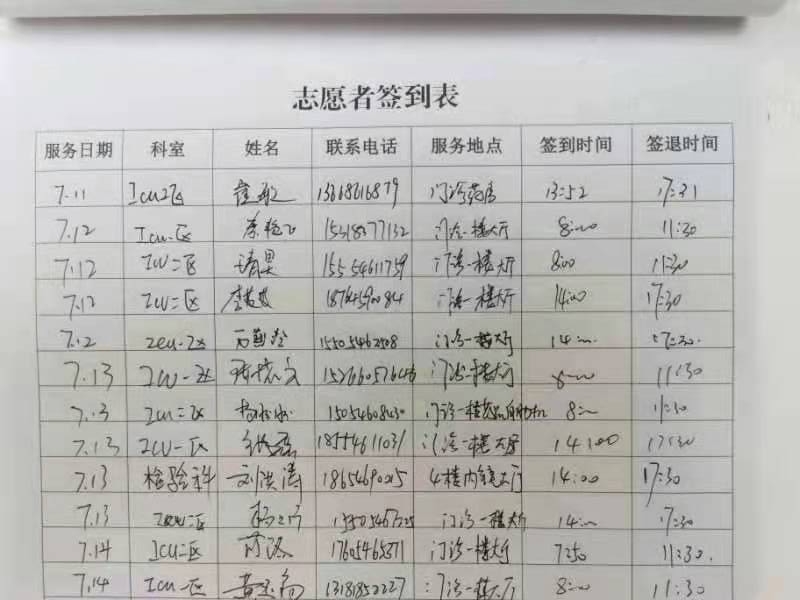 志愿者签到表
服务日期 科室 姓名 联系电话 服务地点 签到时间 签退时间
7.11 Icu二区 13618616879 门诊药房 13:52 17:31
7.12 Icu一区 15318377132 门诊一楼大厅 8:00 11:30
7.12 ICU二区 15554611759 门诊一楼大厅 8:00 11:30
7.12 ICU二区 18764590084 门诊一楼大厅 14:00 17:30
7.12 Icu一区 15505462508 门诊一楼大厅 14:00 17:30
7.13 ICU一区 门诊一楼大厅 8:00 11:30
7.13 ICU二区 15054608430 门诊一楼 8:00 11:30
7.13 ICU一区 18554611031 门诊一楼大厅 14:00 17:30
7.13 检验科 刘洪涛 18654690015 4楼内镜大厅 14:00 17:30
7.13 ICU二区 门诊一楼大厅 14:00 17:30
7.14 ICU二区 17605465371 门诊一楼大厅 7:50 11:30
7.14 ICU一区 13181852227 门诊一楼大厅 8:00 11:30